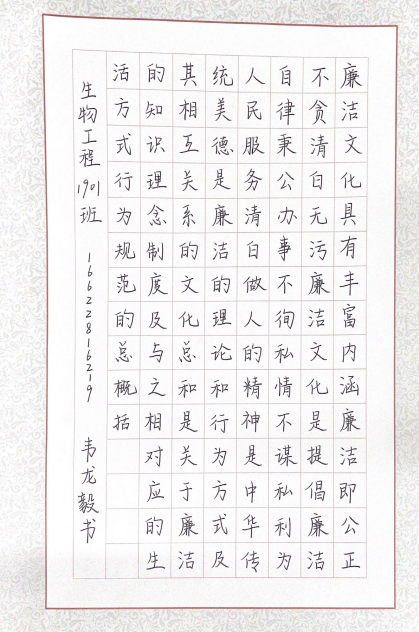 廉洁文化具有丰富内涵廉洁即公正
不贪清白无污廉洁文化是提倡廉洁
自律秉公办事不徇私情不谋私利为
人民服务清白做人的精神是中华传
统美德是廉洁的理论和行为方式及
其相互关系的文化总和是关于廉洁
的知识理念制度及与之相对应的生
活方式行为规范的总概括
生物工程1901班 16622816219 韦龙毅书